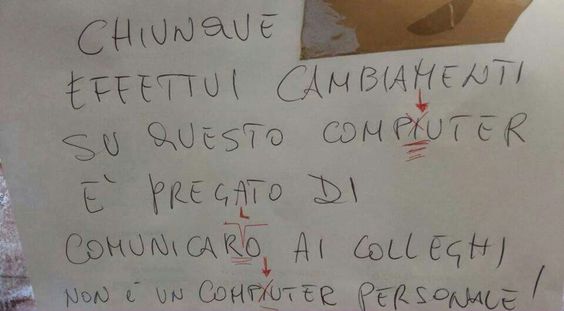 CHIUNQUE
EFFETTUI CAMBIAMENTI
SU QUESTO COMPIUTER
E' PREGATO DI
COMUNICARLO AI COLLEGHI
NON È UN COMPIUTER PERSONALE!